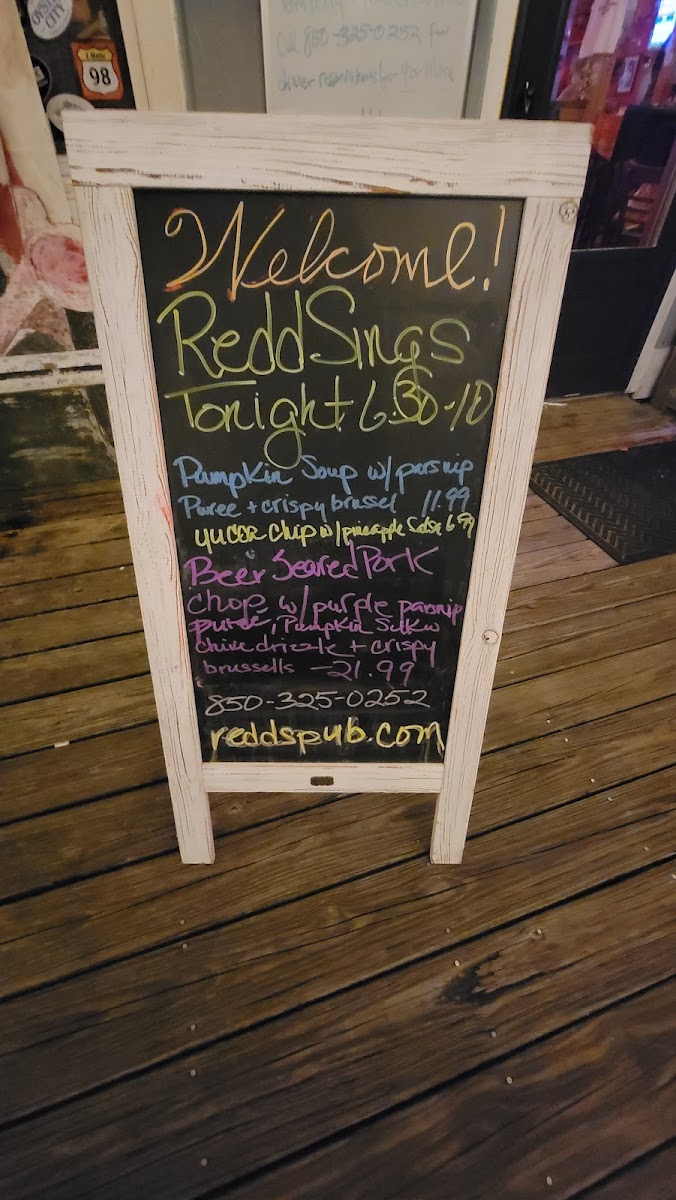 OYSTER
CITY
I Hate
98
Call 850-325-0252 for
dinner reservations for
Welcome!
Redd Sings
Tonight 6:30-10
Pumpkin Soup w/ parsnip
Puree + crispy brussel 11.99
yucca chip w/ pineapple Salsa 6
Beer Seared Pork
chop w/ purple parsnip
puree, Pumpkin
chive drizzle + crispy
brussells - 21.99
850-325-0252
reddspub.com